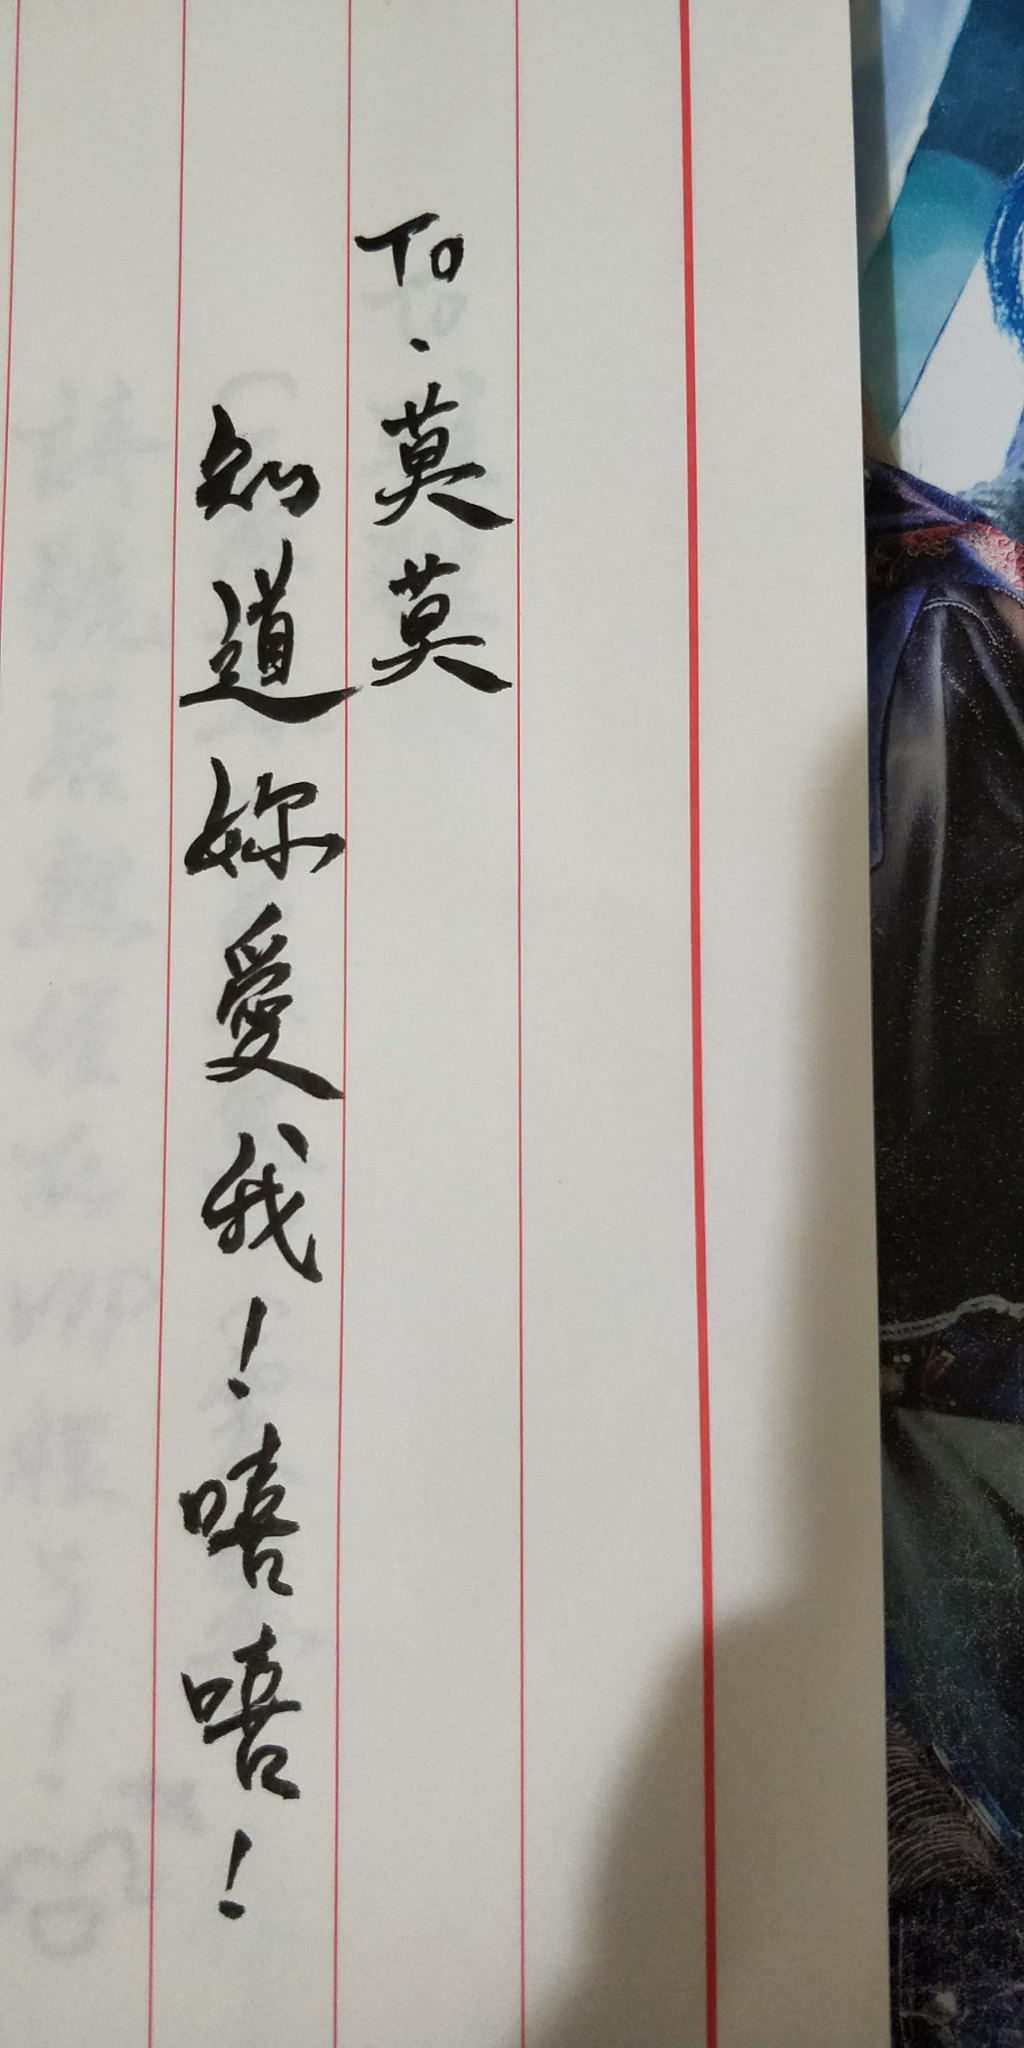 To·莫莫
知道妳愛我！嘻嘻！